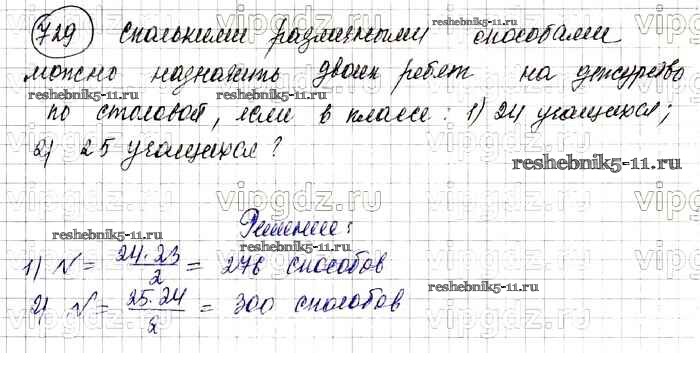 729 Сколькими различными способами
можно назначить двоих ребят на дежурство
по столовой, если в классе: 1) 24 учащихся;
2) 25 учащихся?
Решение:
1) N = 24·23/2 = 276 способов
2) N = 25·24/2 = 300 способов
vipgdz.ru
reshebnik5-11.ru
vipgdz.ru
reshebnik5-11.ru
reshebnik5-11.ru
reshebnik5-11.ru
vipgdz.ru
reshebnik5-11.ru
reshebnik5-11.ru
vipgdz.ru